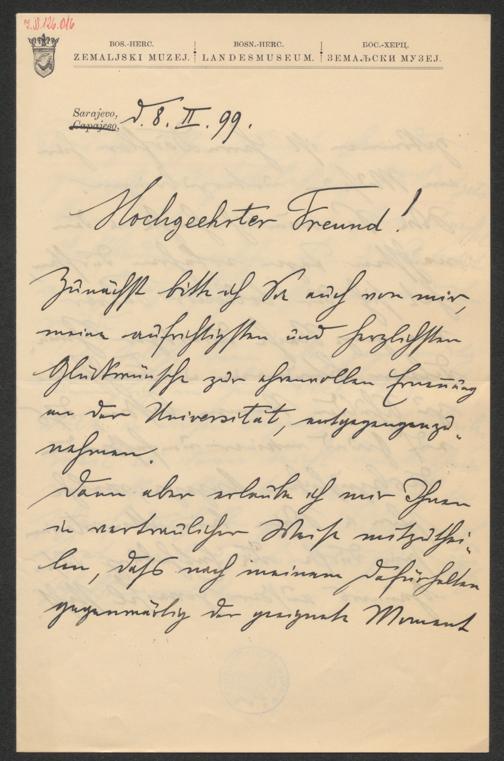 I.N.126.016
BOS.-HERC. BOSN.-HERC. БОС.-ХЕРЦ.
ZEMALJSKI MUZEJ. LANDESMUSEUM. ЗЕМАЉСКИ МУЗЕЈ.
Sarajevo,
Сарајево, d. 8. II. 99.
Hochgeehrter Freund!
Zunächst bitte ich Sie auch von mir,
meine aufrichtigsten und herzlichsten
Glückwünsche zur ehrenvollen Ernennung
an der Universität, entgegenzu-
nehmen.
Dann aber erlaube ich mir Ihnen
in vertraulicher Weise mitzuthei-
len, dass nach meinem Dafürhalten
gegenwärtig der geeignete Moment